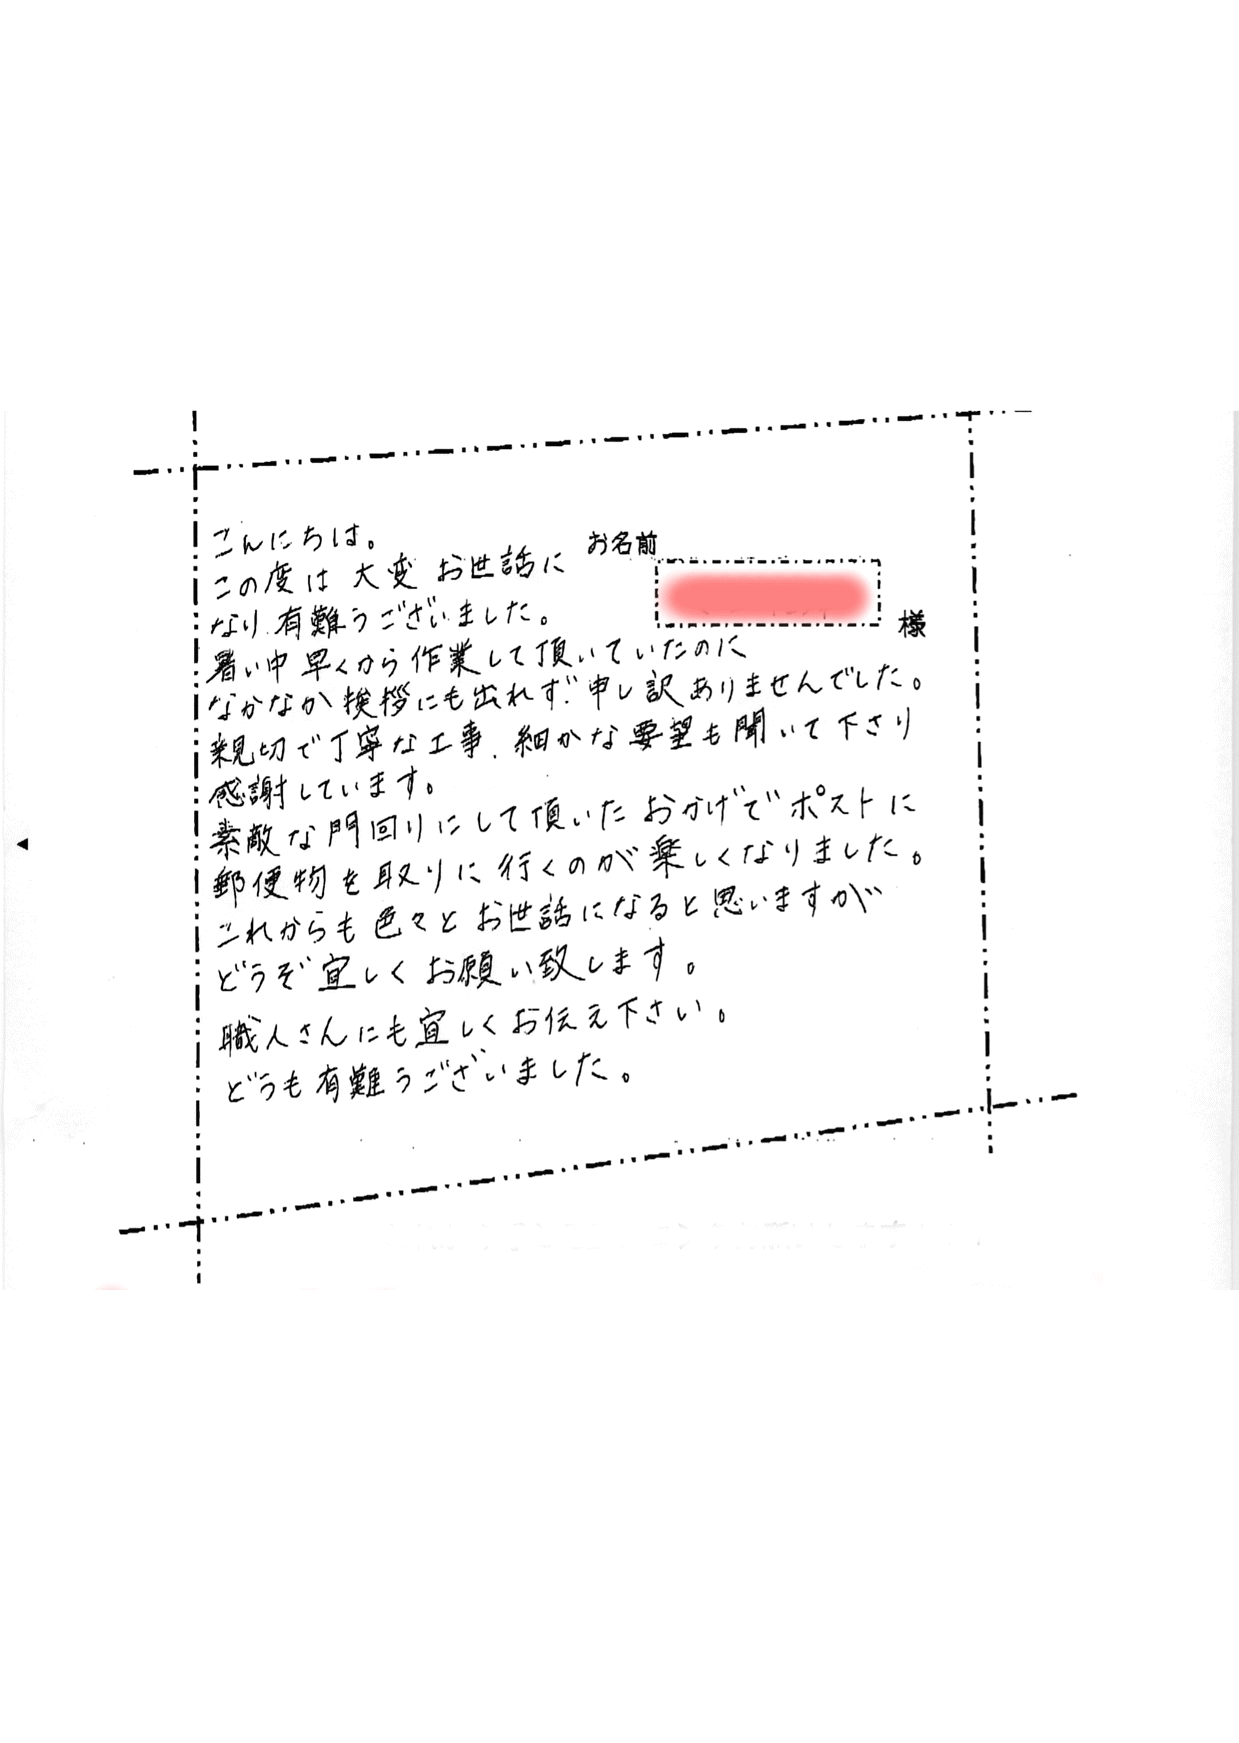 こんにちは。
お名前
この度は大変お世話に
なり、有難うございました。
様
暑い中早くから作業して頂いていたのに
なかなか挨拶にも出れず、申し訳ありませんでした。
親切で丁寧な工事、細かな要望も聞いて下さり
感謝しています。
素敵な門回りにして頂いたおかげでポストに
郵便物を取りに行くのが楽しくなりました。
これからも色々とお世話になると思いますが
どうぞ宜しくお願い致します。
職人さんにも宜しくお伝え下さい。
どうも有難うございました。